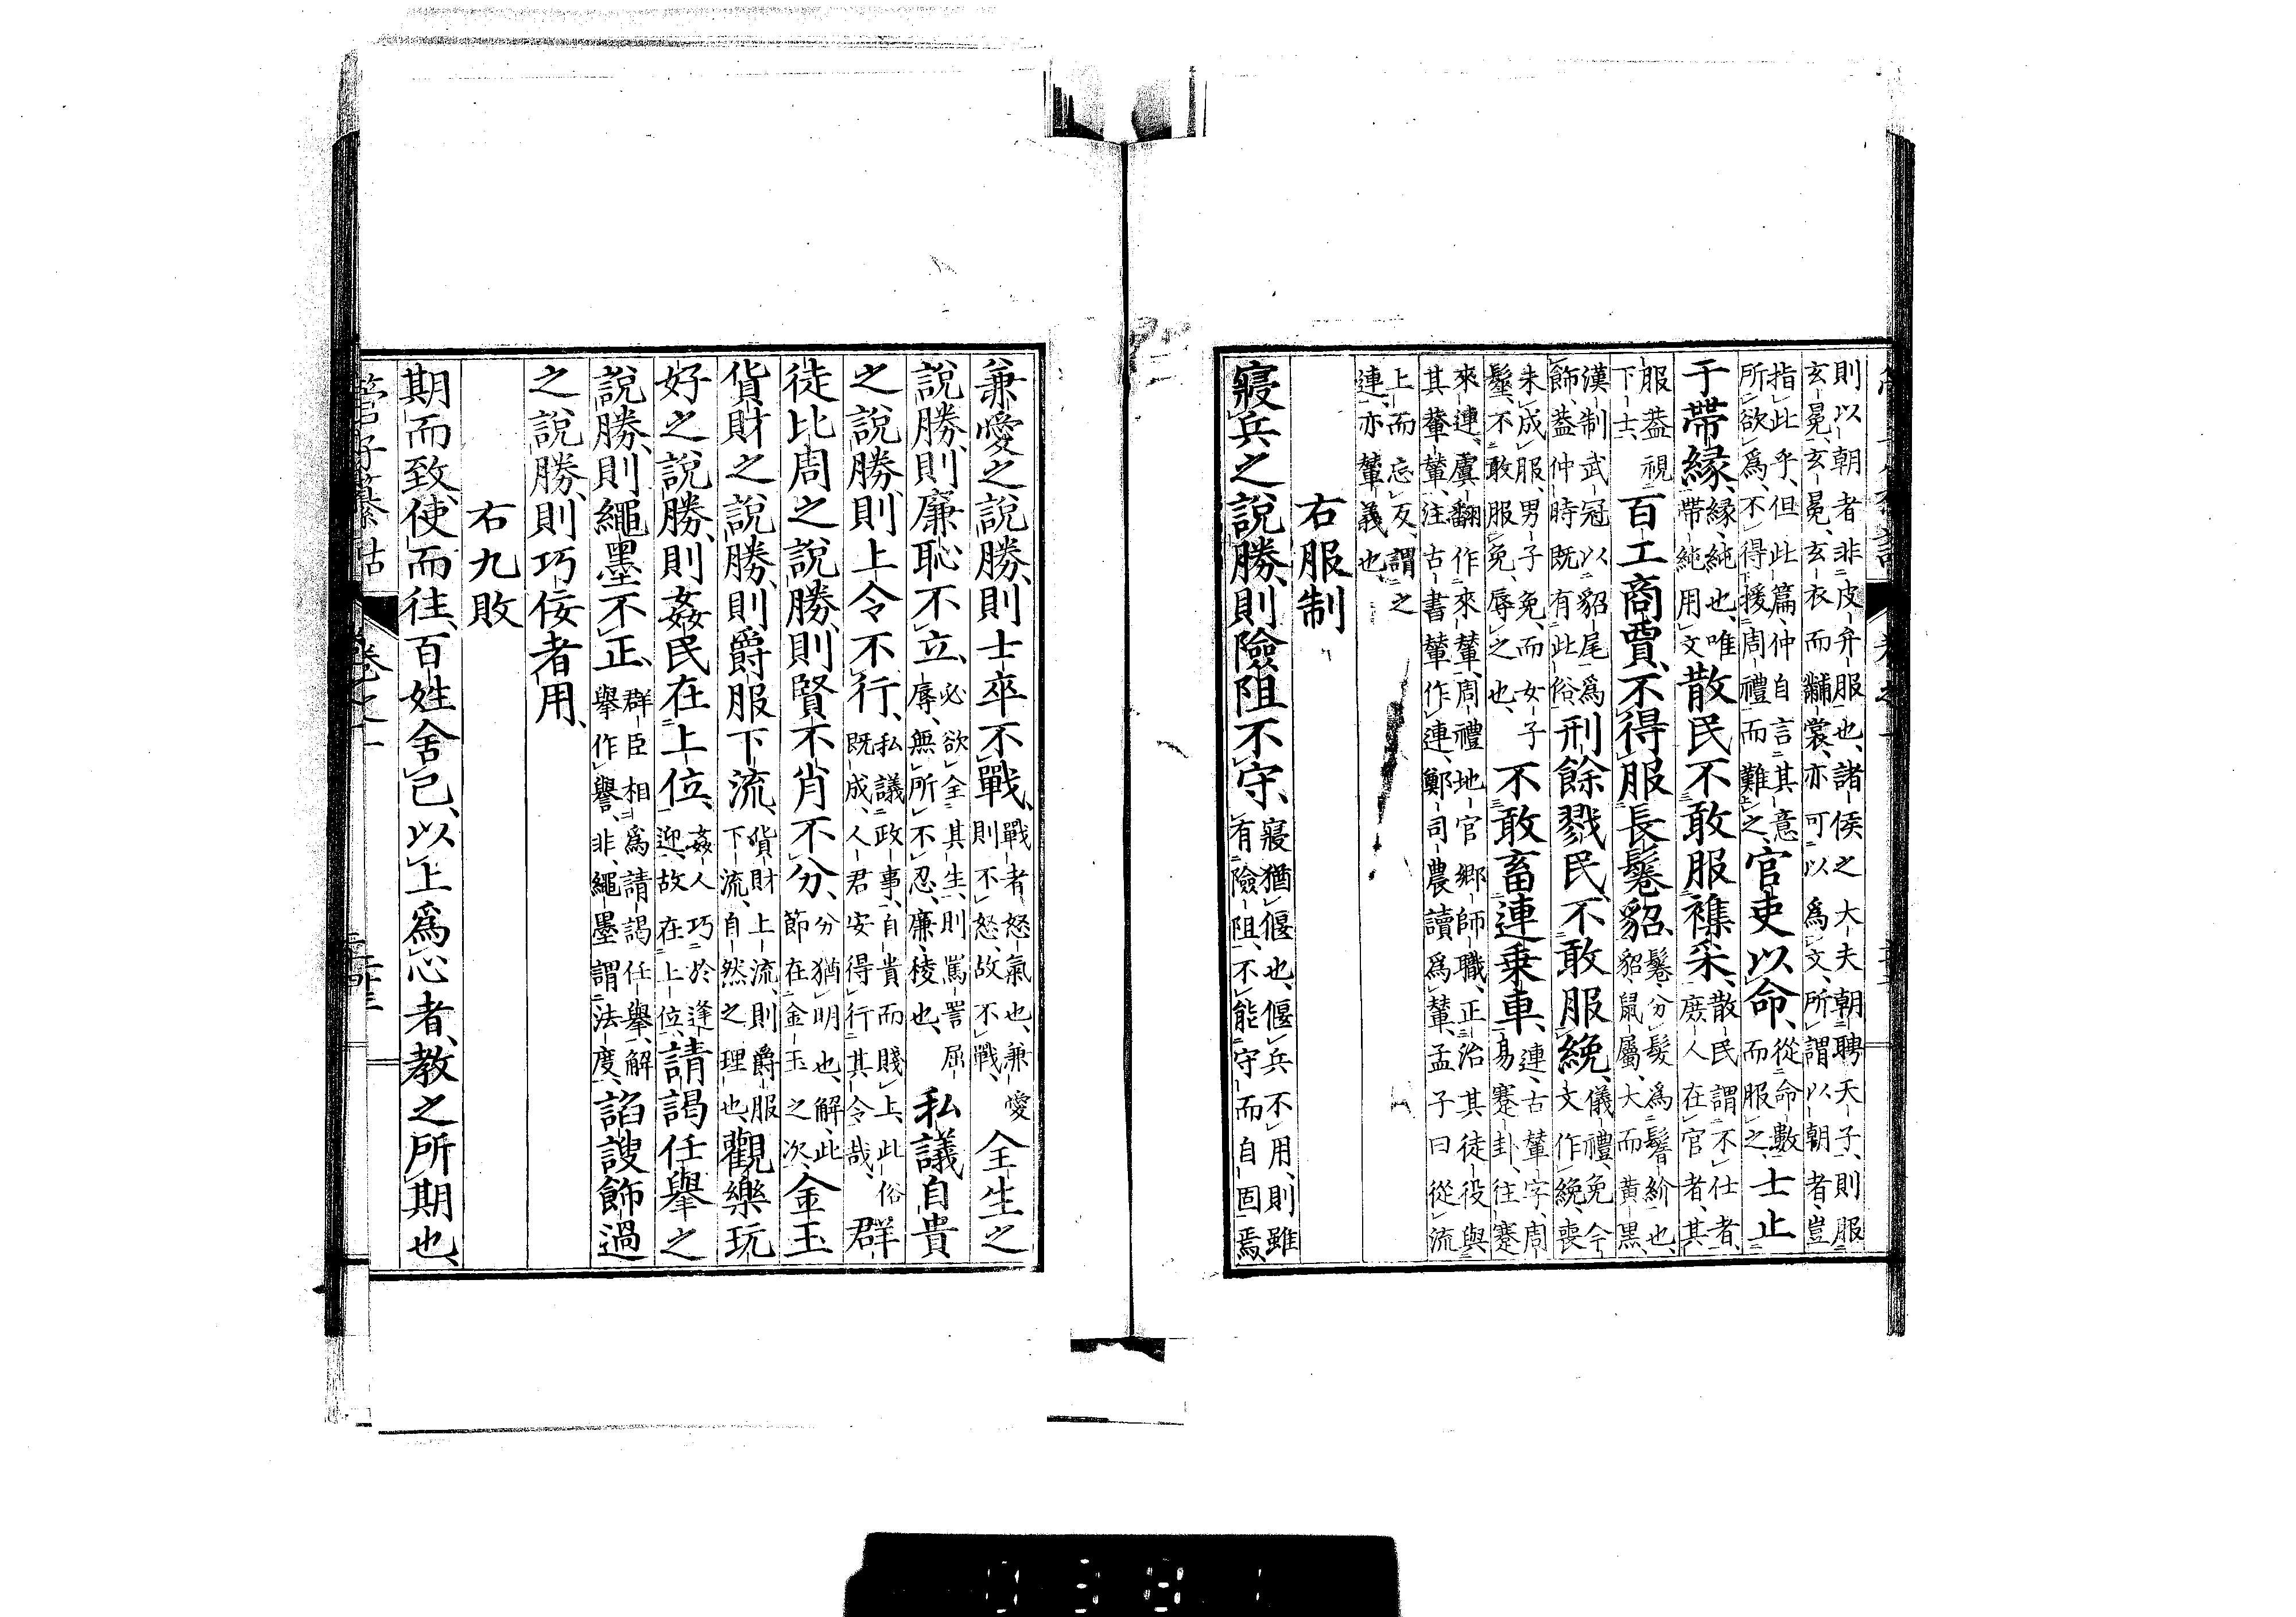 則以朝者非皮弁服也、諸侯之大夫朝聘天子、則服
玄冕、玄冕、玄衣而黼裳、亦可以爲文、所謂以朝者、豈
指此乎、但此篇、仲自言其意
所欲爲、不得援周禮而難之、官吏以命、從命數
而服之、士止
于帶緣、緣、純也、唯
帶純用文、散民不敢服襍采、散民謂不仕者、
庶人在官者、其
服蓋視
下士、百工商賈、不得服長鬈貂、鬈、分髮爲鬠紒也、
貂鼠屬、大而黄黑、
漢制武冠以貂尾爲
飾、蓋仲時既有此俗、刑餘戮民、不敢服絻、儀禮、免、今
文作絻、喪
未成服、男子免、而女子
髽、不敢服免、辱之也、不敢畜連乗車、連、古輦字、周
易蹇卦、往蹇
來連、虞翻作來輦、周禮地官鄉師職、正治其徒役與
其輦輦、注古書輦作連、鄭司農讀爲輦、孟子曰從流
上而忘反、謂之
連、亦輦義也、
右服制
寢兵之說勝、則險阻不守、寢猶偃也、偃兵不用、則雖
有險阻、不能守而自固焉、
兼愛之說勝、則士卒不戰、戰者怒氣也、兼愛
則不怒、故不戰、全生之
說勝、則廉恥不立、必欲全其生、則罵詈屈
辱、無所不忍、廉、稜也、私議自貴
之說勝、則上令不行、私議政事、自貴而賤上、此俗
既成、人君安得行其令哉、群
徒比周之說勝、則賢不肖不分、分猶明也、解、此
節在金玉之次、金玉
貨財之說勝、則爵服下流、貨財上流、則爵服
下流、自然之理也、觀樂玩
好之說勝、則姦民在上位、姦人巧於逢
迎、故在上位、請謁任擧之
說勝、則繩墨不正、群臣相爲請謁任擧、解
擧作譽、非、繩墨謂法度、諂諛飾過
之說勝、則巧佞者用、
右九敗
期而致、使而往、百姓舍己、以上爲心者、教之所期也、
管子纂詁 卷之一